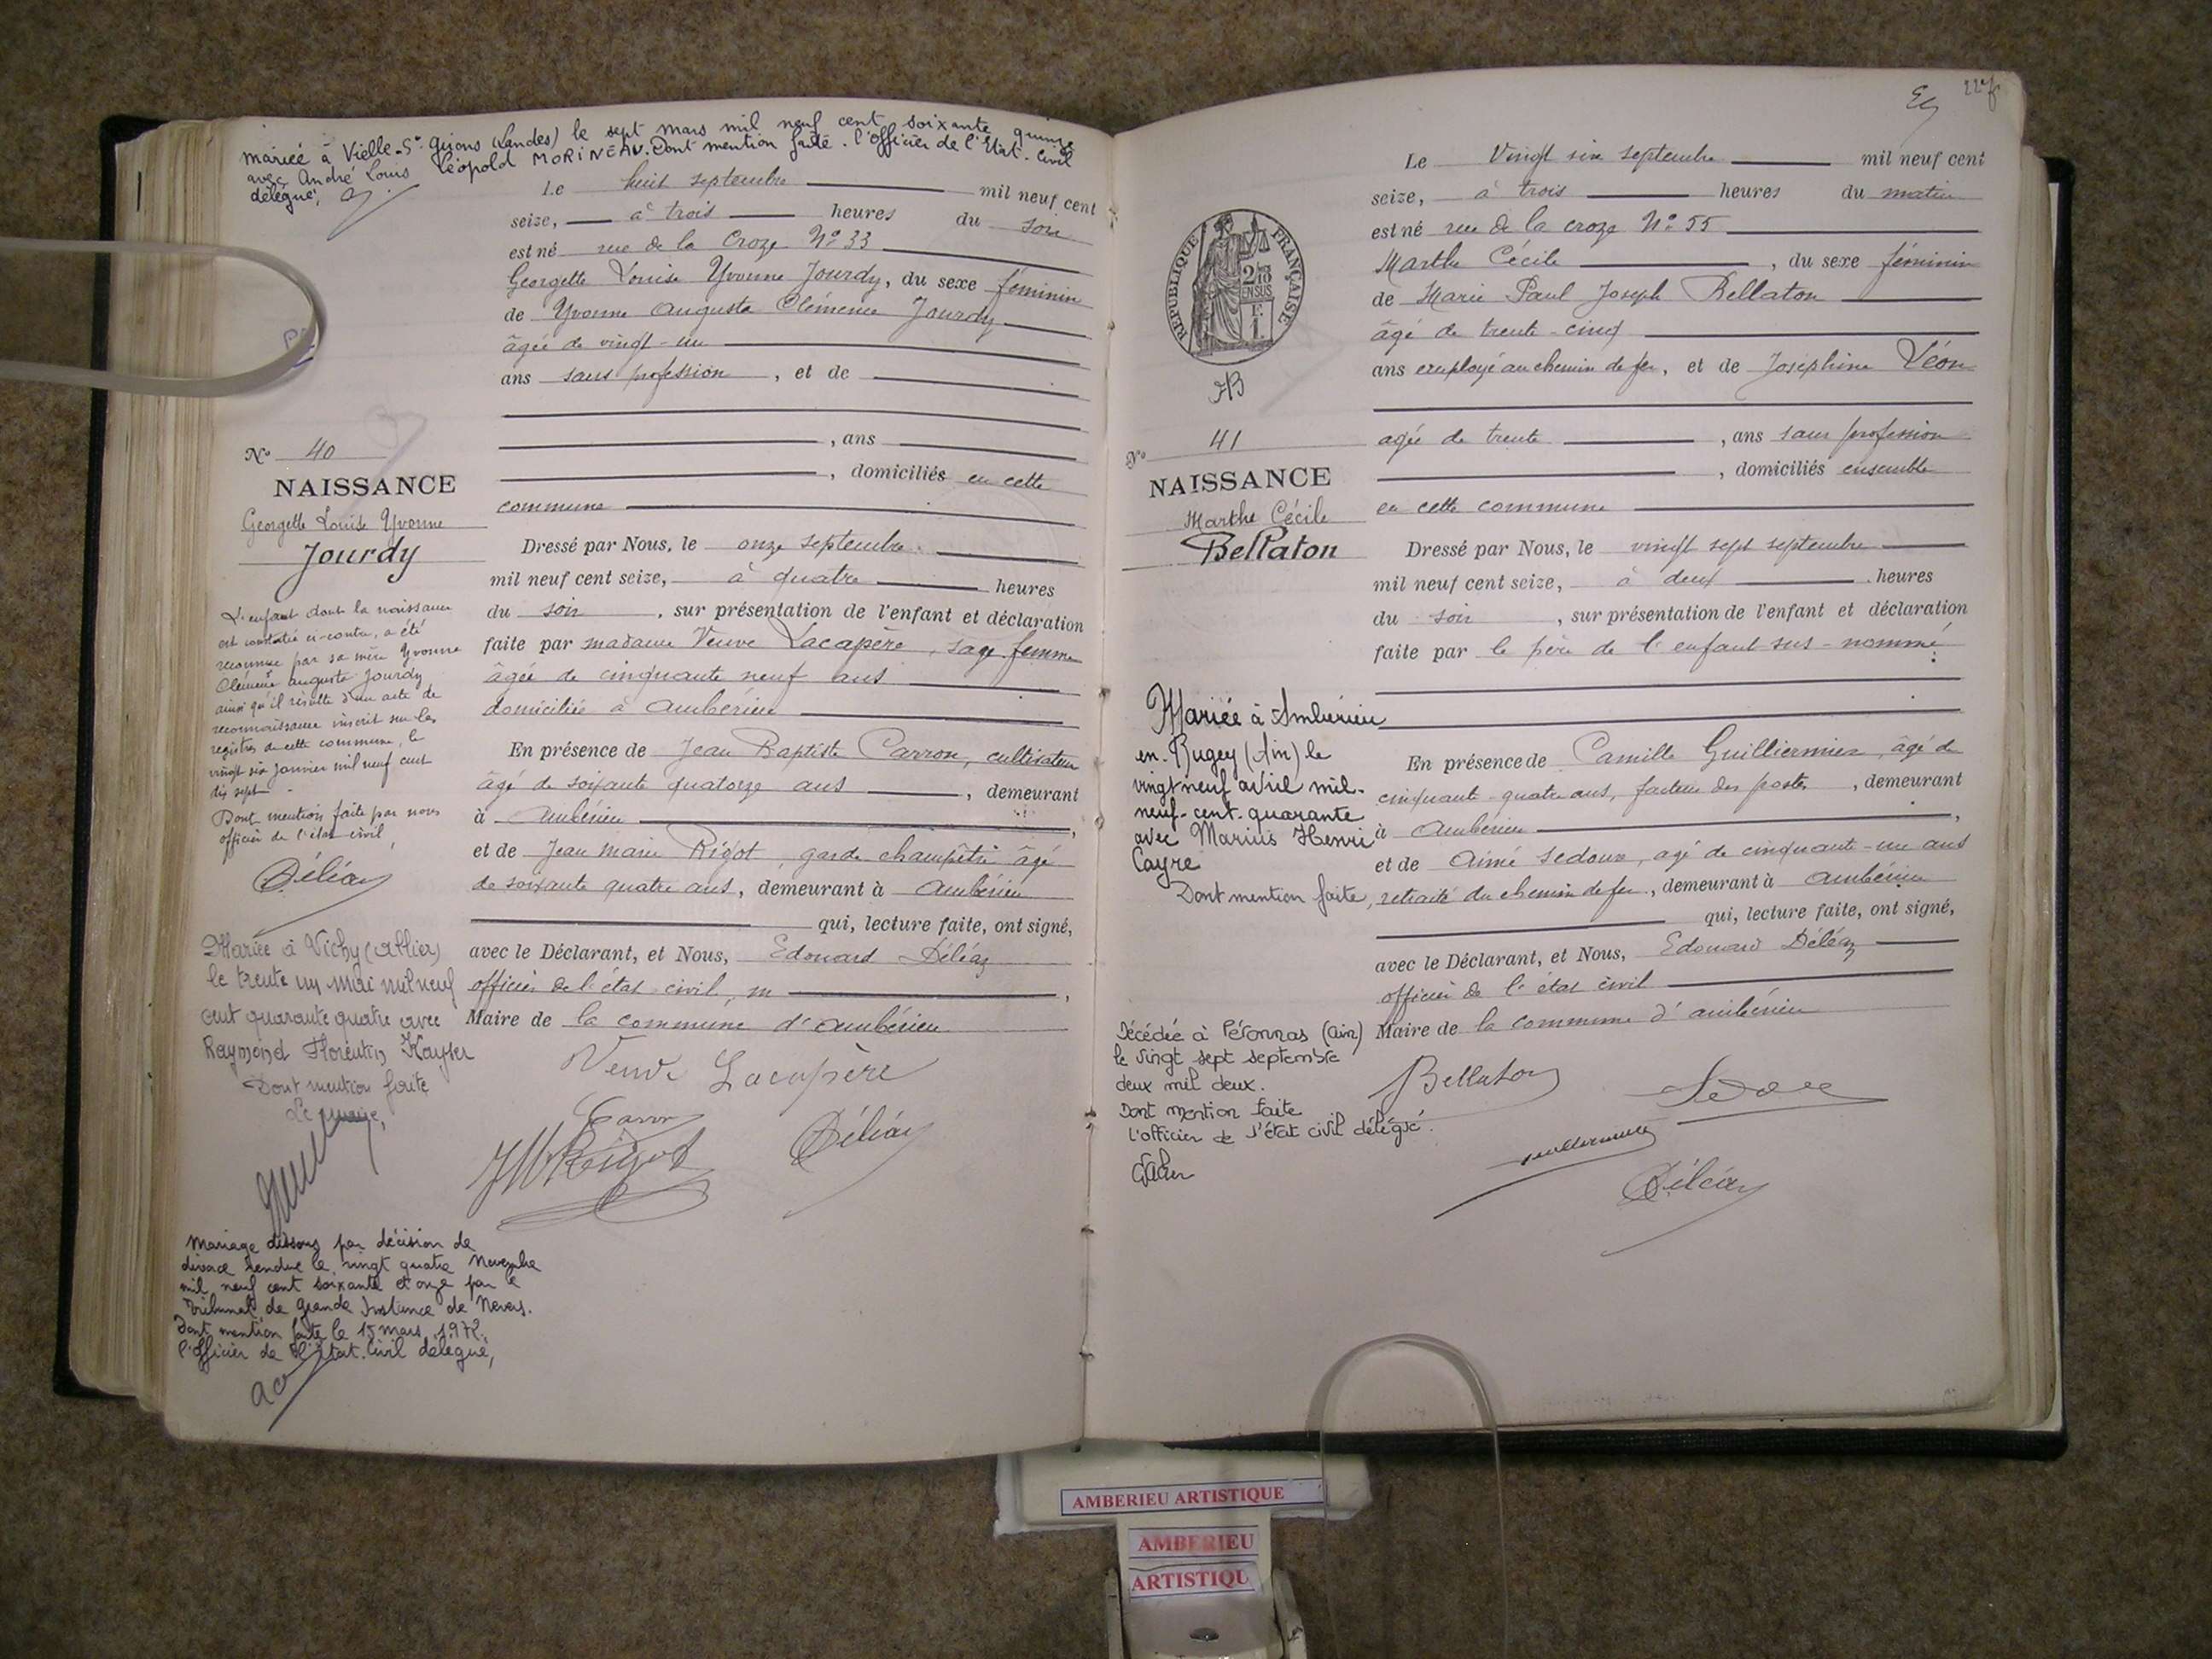 mariée à Vielle-St Girons (Landes) le sept mars mil neuf cent soixante quinze
avec André Louis Léopold MORINEAU. Dont mention faite. l'Officier de l'Etat-Civil
délégué,
Le huit septembre mil neuf cent
seize, à trois heures du soir
est né rue de la Croze N° 33
Georgette Louise Yvonne Jourdy, du sexe féminin
de Yvonne Augusta Clémence Jourdy
âgée de vingt-un
ans sans profession, et de
, ans
, domiciliés en cette
commune
N° 40
NAISSANCE
Georgette Louise Yvonne
Jourdy
Dressé par Nous, le onze septembre
mil neuf cent seize, à quatre heures
du soir, sur présentation de l'enfant et déclaration
faite par madame Veuve Lacapère, sage femme
âgée de cinquante neuf ans
domiciliée à Ambérieu
En présence de Jean Baptiste Carron, cultivateur
âgé de soixante quatorze ans, demeurant
à Ambérieu,
et de Jean Marie Rigot, garde champêtre âgé
de soixante quatre ans, demeurant à Ambérieu
qui, lecture faite, ont signé,
avec le Déclarant, et Nous, Edouard Déléaz
officier de l'état civil,
Maire de la commune d'Ambérieu
Veuve Lacapère
Carron
JM Rigot
Déléaz
L'enfant dont la naissance
est constatée ci-contre, a été
reconnue par sa mère Yvonne
Clémence Augusta Jourdy
ainsi qu'il résulte d'un acte de
reconnaissance inscrit sur les
registres de cette commune, le
vingt six janvier mil neuf cent
dix sept
Dont mention faite par nous
officier de l'état civil,
Déléaz
Mariée à Vichy (Allier)
le trente un mai mil neuf
cent quarante quatre avec
Raymond Florentin Kayser
Dont mention faite
Le maire,
Mariage dissous par décision de
divorce rendue le vingt quatre Novembre
mil neuf cent soixante et onze par le
Tribunal de Grande Instance de Nevers.
Dont mention faite le 15 mars 1972.
l'Officier de l'Etat-Civil délégué,
227
Le Vingt six septembre mil neuf cent
seize, à trois heures du matin
est né rue de la croze N° 55
Marthe Cécile, du sexe féminin
de Marie Paul Joseph Bellaton
âgé de trente-cinq
ans employé au chemin de fer, et de Joséphine Léon
agée de trente, ans sans profession
, domiciliés ensemble
en cette commune
RÉPUBLIQUE FRANÇAISE
N° 41
NAISSANCE
Marthe Cécile
Bellaton
Dressé par Nous, le vingt sept septembre
mil neuf cent seize, à deux heures
du soir, sur présentation de l'enfant et déclaration
faite par le père de l'enfant sus-nommé
En présence de Camille Guilliermier, âgé de
cinquante-quatre ans, facteur des postes, demeurant
à Ambérieu,
et de Aimé Sedoux, agé de cinquante-un ans
retraité du chemin de fer, demeurant à Ambérieu
qui, lecture faite, ont signé,
avec le Déclarant, et Nous, Edouard Déléaz
officier de l'état civil
Maire de la commune d'Ambérieu
Bellaton
Déléaz
Mariée à Ambérieu
en-Bugey (Ain) le
vingt neuf avril mil-
neuf-cent-quarante
avec Marius Henri
Cayre
Dont mention faite,
Décédée à Péronnas (Ain)
le vingt sept septembre
deux mil deux.
Dont mention faite
L'officier de l'état civil délégué.
AMBERIEU ARTISTIQUE
AMBERIEU
ARTISTIQU